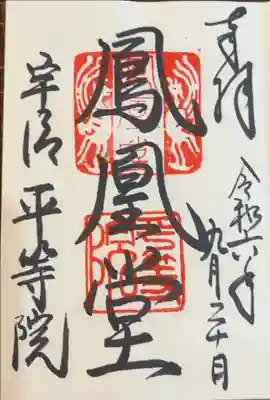 奉拝
令和六年
九月二十日
鳳凰堂
宇治 平等院